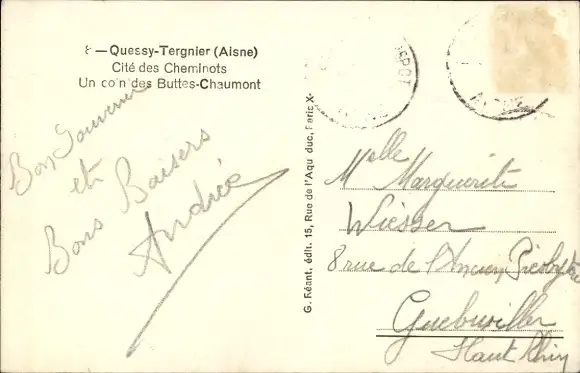 8 — Quessy-Tergnier (Aisne)
Cité des Cheminots
Un coin des Buttes-Chaumont
Bon Souvenir
et
Bons Baisers
Andrée
G. Réant, édit. 15, Rue de l'Aqueduc, Paris X
Melle Marguerite
Wiesser
8 rue de l'Ancien Presbytère
Guebwiller
Haut Rhin